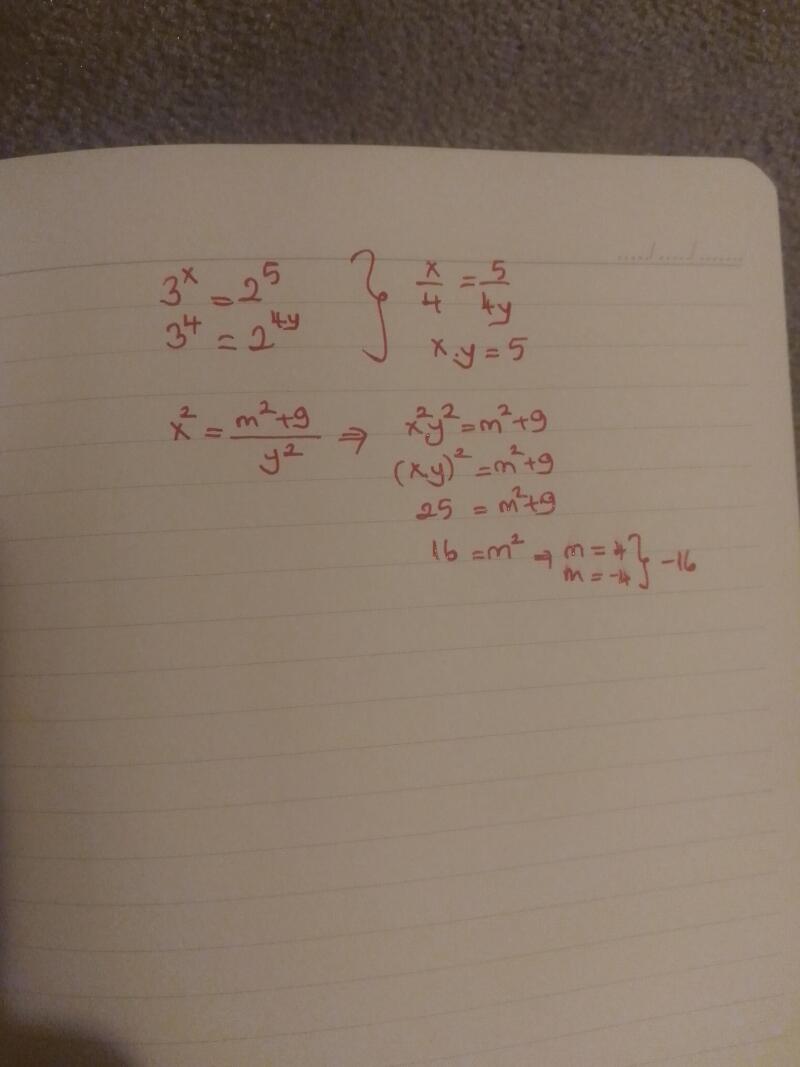 3^x = 2^5 } x/4 = 5/4y
3^4 = 2^4y x.y = 5
x^2 = (m^2+9)/y^2 ⇒ x^2y^2 = m^2+9
(x.y)^2 = m^2+9
25 = m^2+9
16 = m^2 ⇒ m = 4 } -16
m = -4